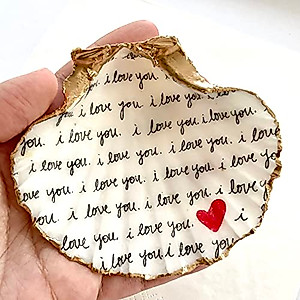 i love you.
i love you. i love you.
i love you. i love you. i love you.
you. i love you. i love you. i love
i love you. i love you. i love you
you. i love you. i love you. i love you
love you. i love you. i
love you. i love you.
i love you. i love you.